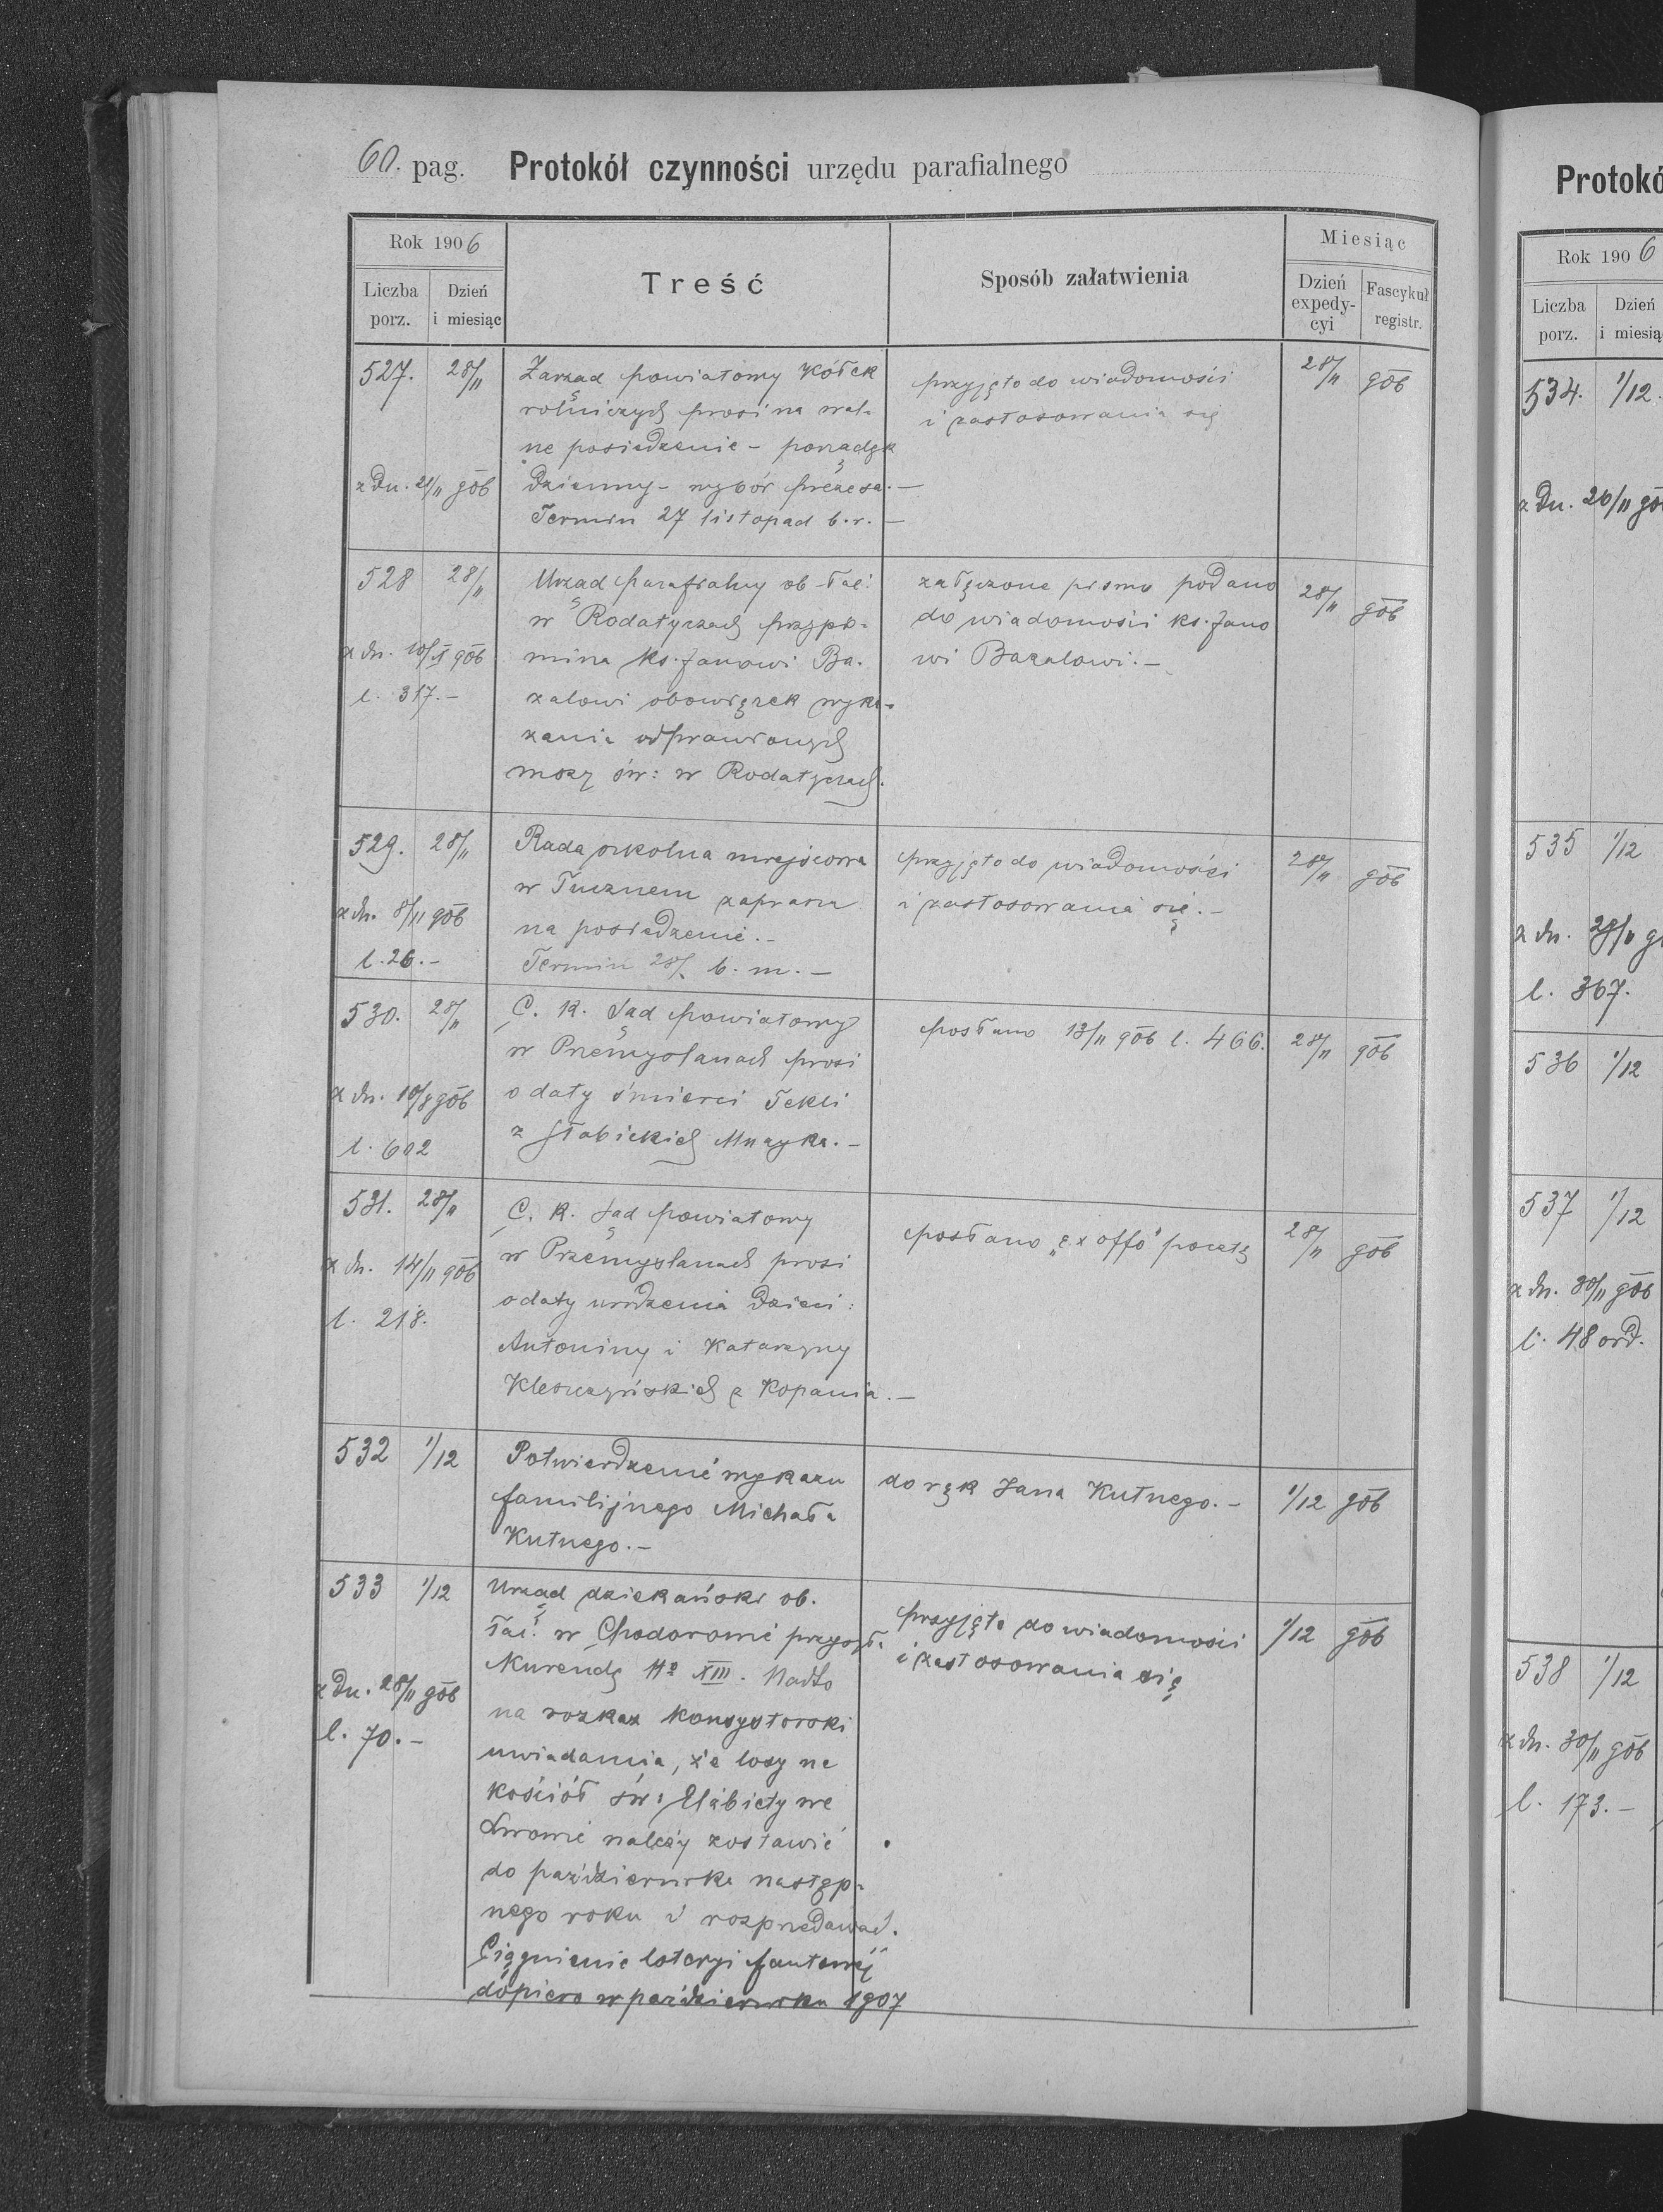 60. pag. Protokół czynności urzędu parafialnego
Rok 1906
Liczba porz.
Dzień i miesiąc
Treść
Sposób załatwienia
Miesiąc
Dzień expedycyi
Fascykuł registr.
527. 28/11
z dn. 21/11 gōb
Zarząd powiatowy kółek
rolniczych prosi na wal-
ne posiedzenie - porządek
dzienny - wybór prezesa. -
Termin 27 listopad b.r. -
przyjęto do wiadomości
i zastosowania się
28/11 gōb
528 28/11
z dn. 10/X gōb
l. 317. -
Urząd parafialny ob-łac:
w Rodatyczach przypo-
mina ks. Janowi Ba-
zalowi obowiązek wyka-
zania odprawionych
mszy św: w Rodatyczach.
załączone pismo podano
do wiadomości ks. Jano
wi Bazalowi. -
28/11 gōb
529. 28/11
z dn. 8/11 gōb
l. 26. -
Rada szkolna miejscowa
w Tucznem zaprasza
na posiedzenie. -
Termin b. m. -
przyjęto do wiadomości
i zastosowania się. -
28/11 gōb
530. 28/11
z dn. gōb
l. 602
C. K. Sąd powiatowy
w Przemyślanach prosi
o daty śmierci Tekli
z Słabickich Muzyka. -
posłano 13/11 gōb l. 466.
28/11 gōb
531. 28/11
z dn. 14/11 gōb
l. 218.
C. K. Sąd powiatowy
w Przemyślanach prosi
o daty urodzenia dzieci:
Antoniny i Katarzyny
Kleszczyńskich z Kopania. -
posłano „ex offo" pocztą
28/11 gōb
532 1/12
Potwierdzenie wykazu
familijnego Michała
Kutnego. -
do rąk Jana Kutnego. -
1/12 gōb
533 1/12
z dn. 28/11 gōb
l. 70. -
Urząd dziekański ob.
łac: w Chodorowie przysyła
Kurendę No XIII. Nadto
na rozkaz konsystorski
uwiadamia, że losy na
kościół św: Elżbiety we
Lwowie należy zostawić
do października następ-
nego roku i rozprzedawać.
Ciągnienie loteryi fantowej
dopiero w październiku 1907
przyjęto do wiadomości
i zastosowania się
1/12 gōb
Protokó
Rok 1906
Liczba porz.
Dzień i miesią
534. 1/12.
z dn. 26/11 gō
535 1/12
z dn. 28/11 g
l. 367.
536 1/12
537 1/12
z dn. 30/11 gōb
l. 48 ord.
538 1/12
z dn. 30/11 gōb
l. 173. -